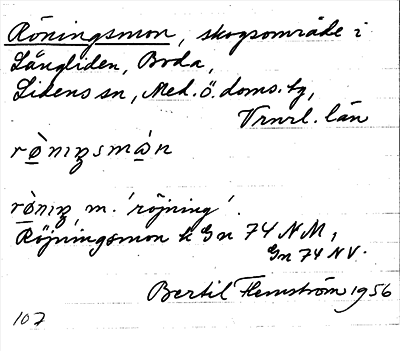 Röningsmon, skogsområde i
Långliden, Boda,
Lidens sn, Med. Ö. doms. tg,
Vrnrl. län
rò̱nıŋsmá̱n
rò̱nıŋ, m. 'röjning'.
Röjningsmon k Gn 74 NM,
Gn 74 NV.
Bertil Flemström 1956
107